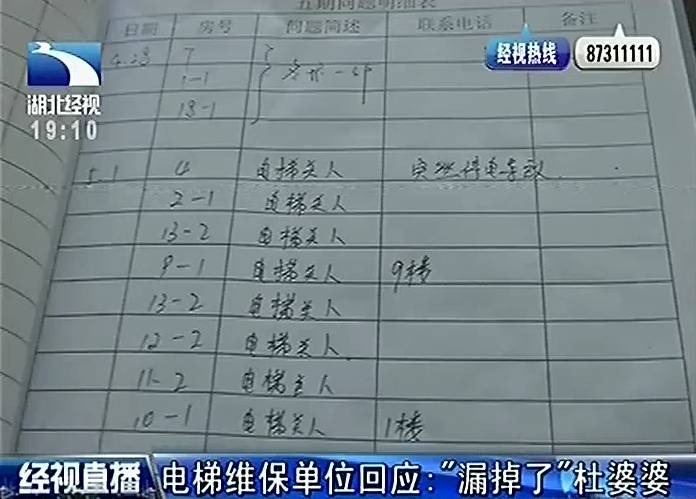 五期问题明细表
日期 房号 问题简述 联系电话 备注
经视热线 87311111
湖北经视
19:10
4.28 7
1-1
18-1
5.1 4 电梯关人 突然停电导致
2-1 电梯关人
13-2 电梯关人
9-1 电梯关人 9楼
13-2 电梯关人
12-2 电梯关人
11-2 电梯关人
10-1 电梯关人 1楼
经视直播 电梯维保单位回应:"漏掉了"杜婆婆